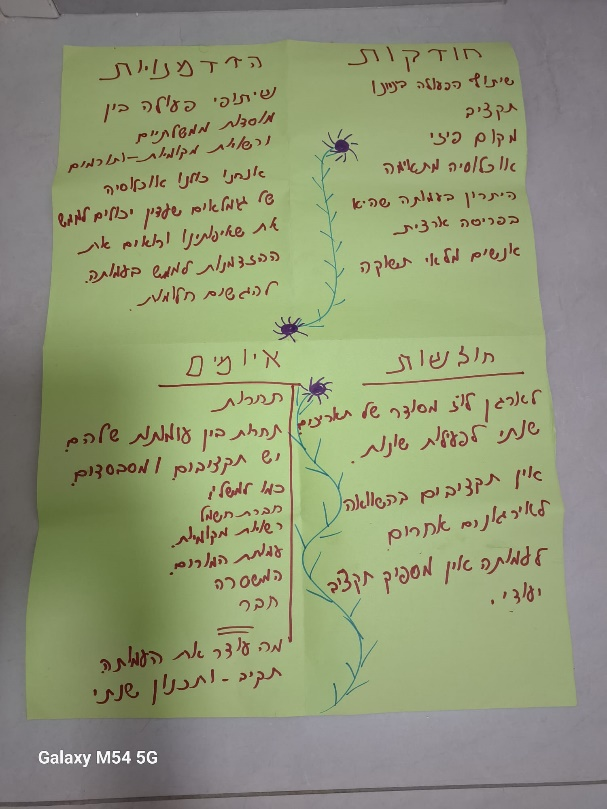 חוזקות
שיתוף הפעולה בינינו
תקציב
מקום פיזי
אוכלוסיה מתאימה
היתרון בעמותה שהיא
בפריסה ארצית
אנשים מלאי תשוקה
הזדמנויות
שיתופי פעולה בין
מוסדות ממשלתיים
ורשויות מקומיות - ותורמים
אנחנו כולנו אוכלוסיה
של גמלאים שעדיין יכולים לממש
את שאיפותינו ורואים את
ההזדמנות לממש בעמותה.
להגשים חלומות.
חולשות
לארגן לוז מסודר של תאריכים
שנתי לפעילות שונות.
אין תקציבים בהשוואה
לאירגונים אחרים
לעמותה אין מספיק תקציב
יעודי.
איומים
תחרות
תחרות בין עמותות שלהם
יש תקציבים ומסבסדים
כמו למשל:
חברת חשמל
רשות מקומית.
עמותת המורים.
המשטרה
חבר
מה עוצר את העמותה
תקיב - ותכנון שנתי
Galaxy M54 5G